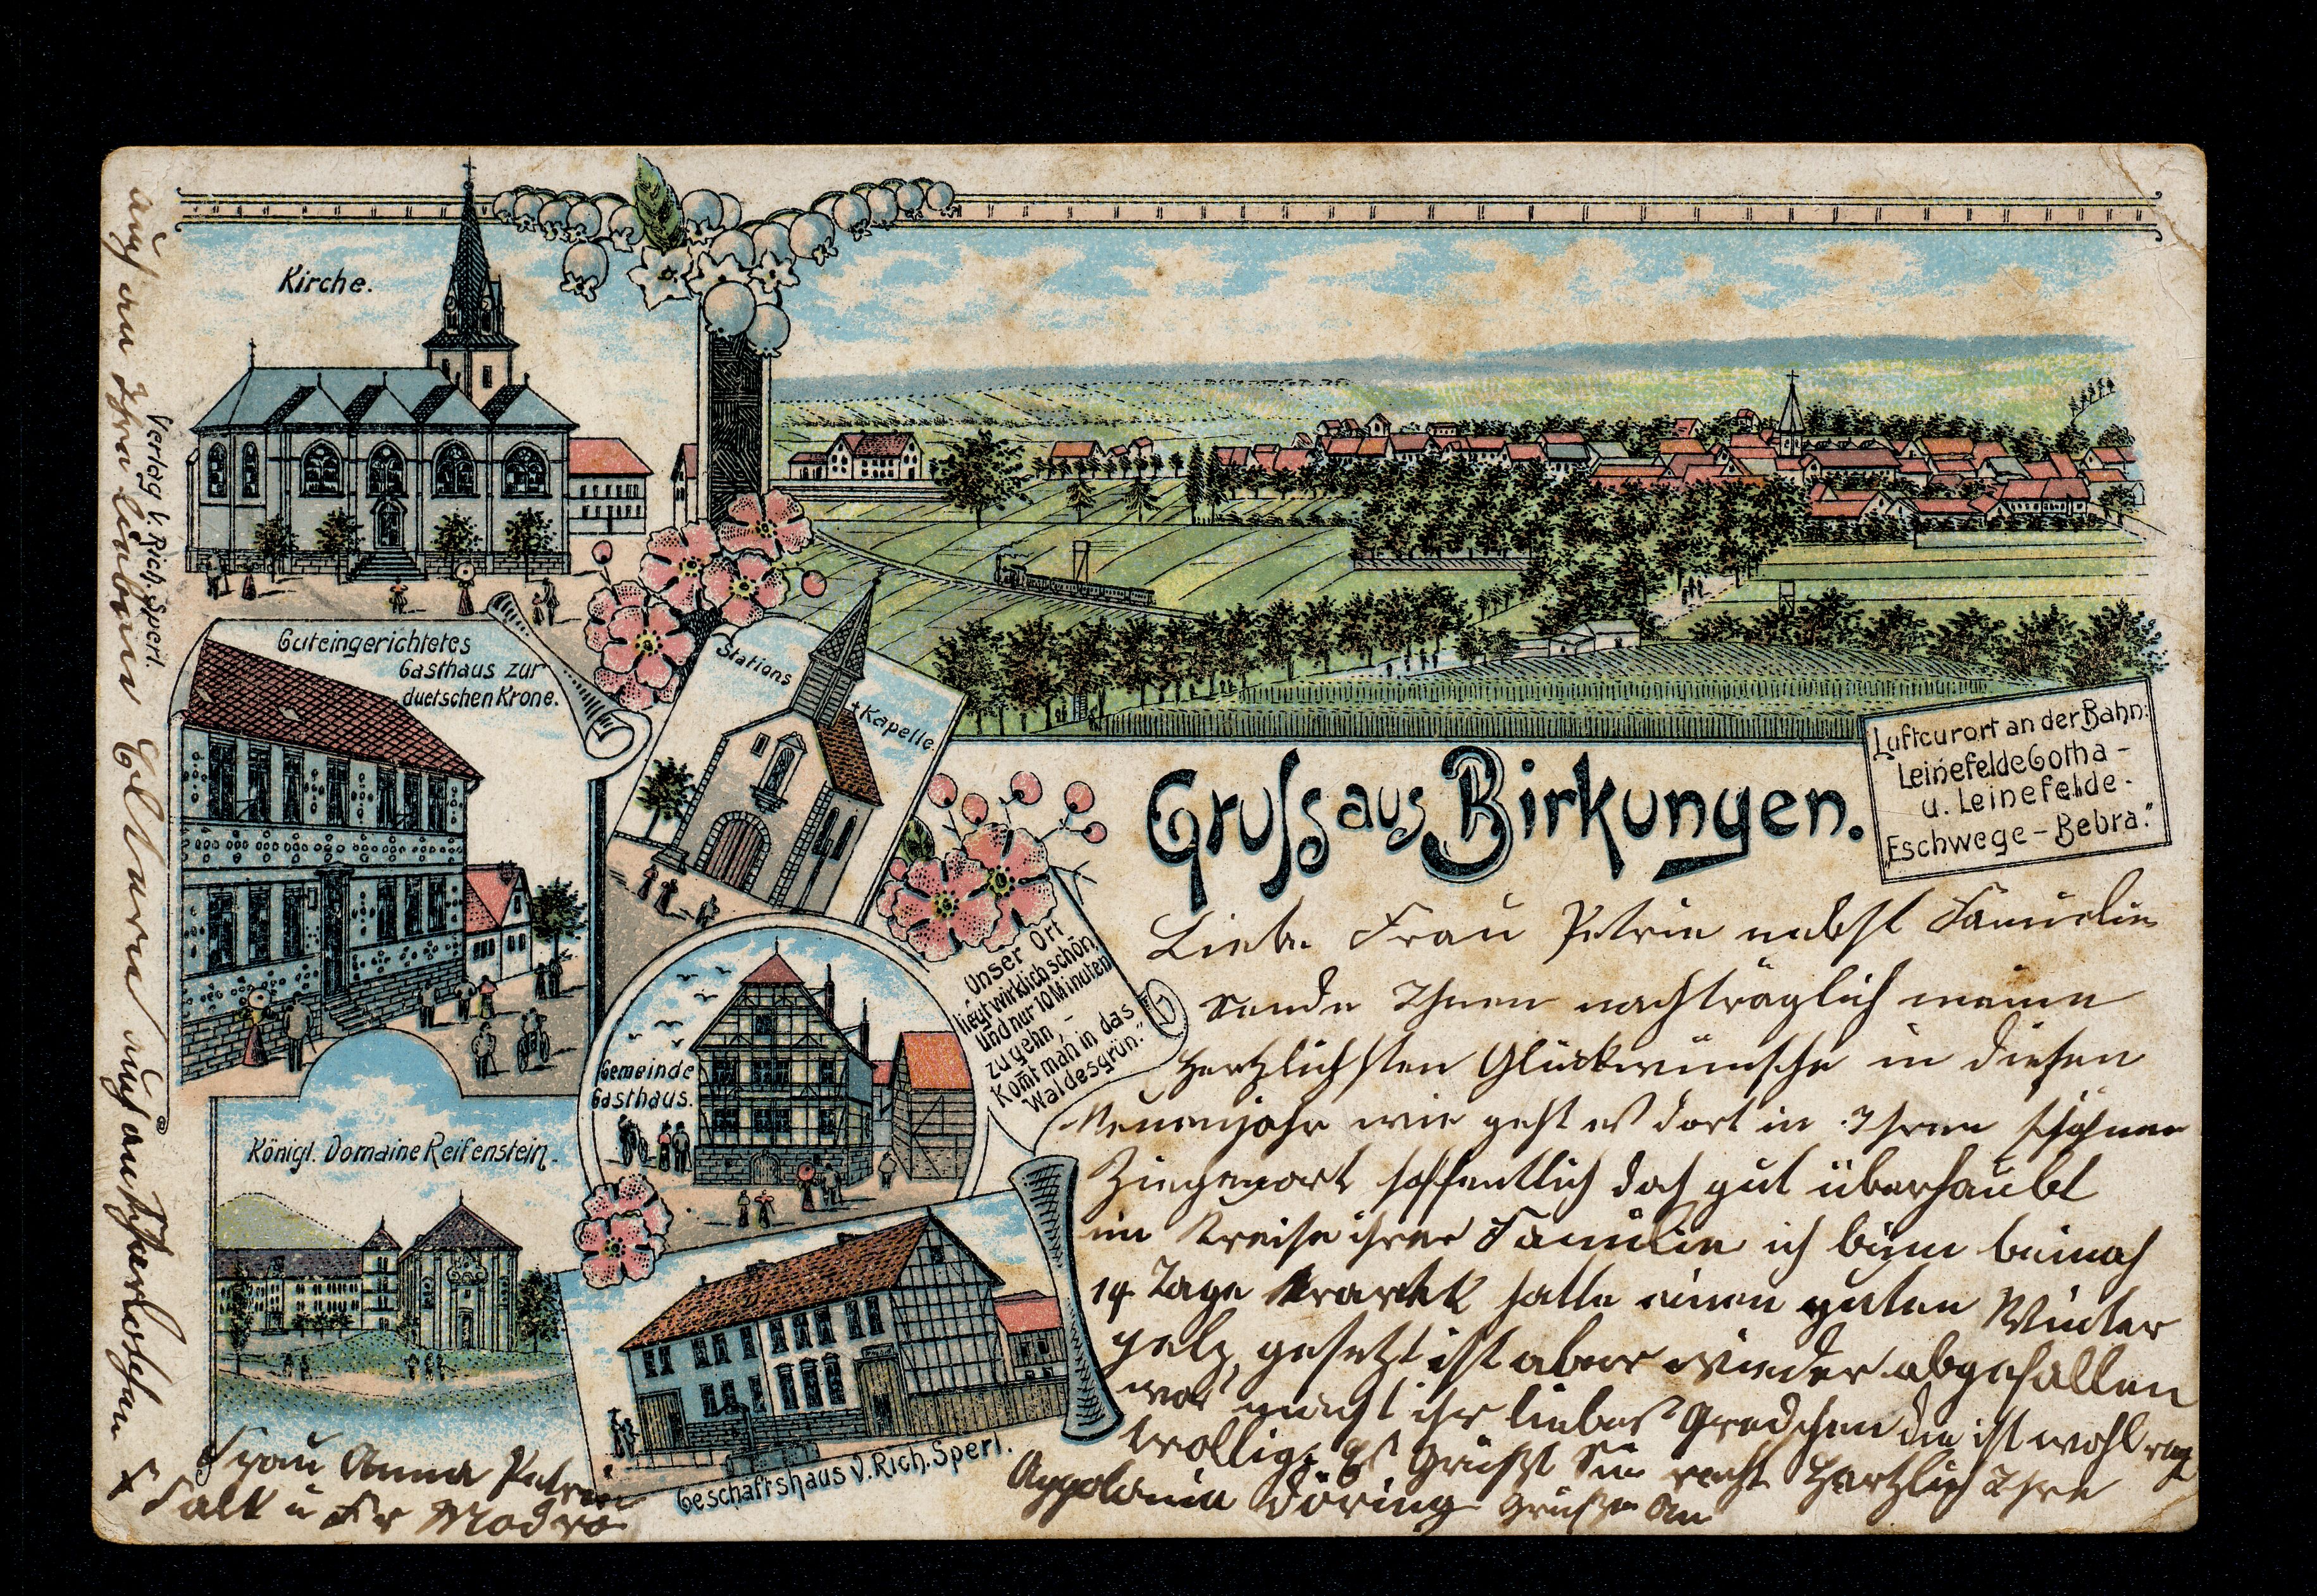 Kirche.
Verlag v. Rich. Sperl.
Guteingerichtetes
Gasthaus zur
duetschen Krone.
Stations
Kapelle.
Luftcurort an der Bahn:
Leinefelde Gotha –
u. Leinefelde-
Eschwege – Bebra."
Gruss aus Birkungen.
Unser Ort
liegt wirklich schön,
und nur 10 Minuten
zu gehn, –
Kom̄t man in das
Waldesgrün."
Gemeinde
Gasthaus.
Königl. Domaine Reifenstein.
Geschäftshaus v. Rich. Sperl.
Liebe Frau Petrie nebst Familie
sende Ihnen nachträglich meine
hertzlichsten Glückwünsche in diesen
Neuenjahr wie geht es dort in Ihren schöner
hoffentlich doch gut überhaubt
im Kreise ihrer Familie ich beinah
14 Tage krank hatte einen guten Winter
pelz gesetzt ist aber wieder abgefallen
was macht ihr liebes Gredchen die ist wohl
trollig. Es Grüßt Sie recht Hertzlich Ihre
Appolonia Döring Grüße an
Frau Anna Petrie
Falk u Fr
auch an Ihre lieben auch an